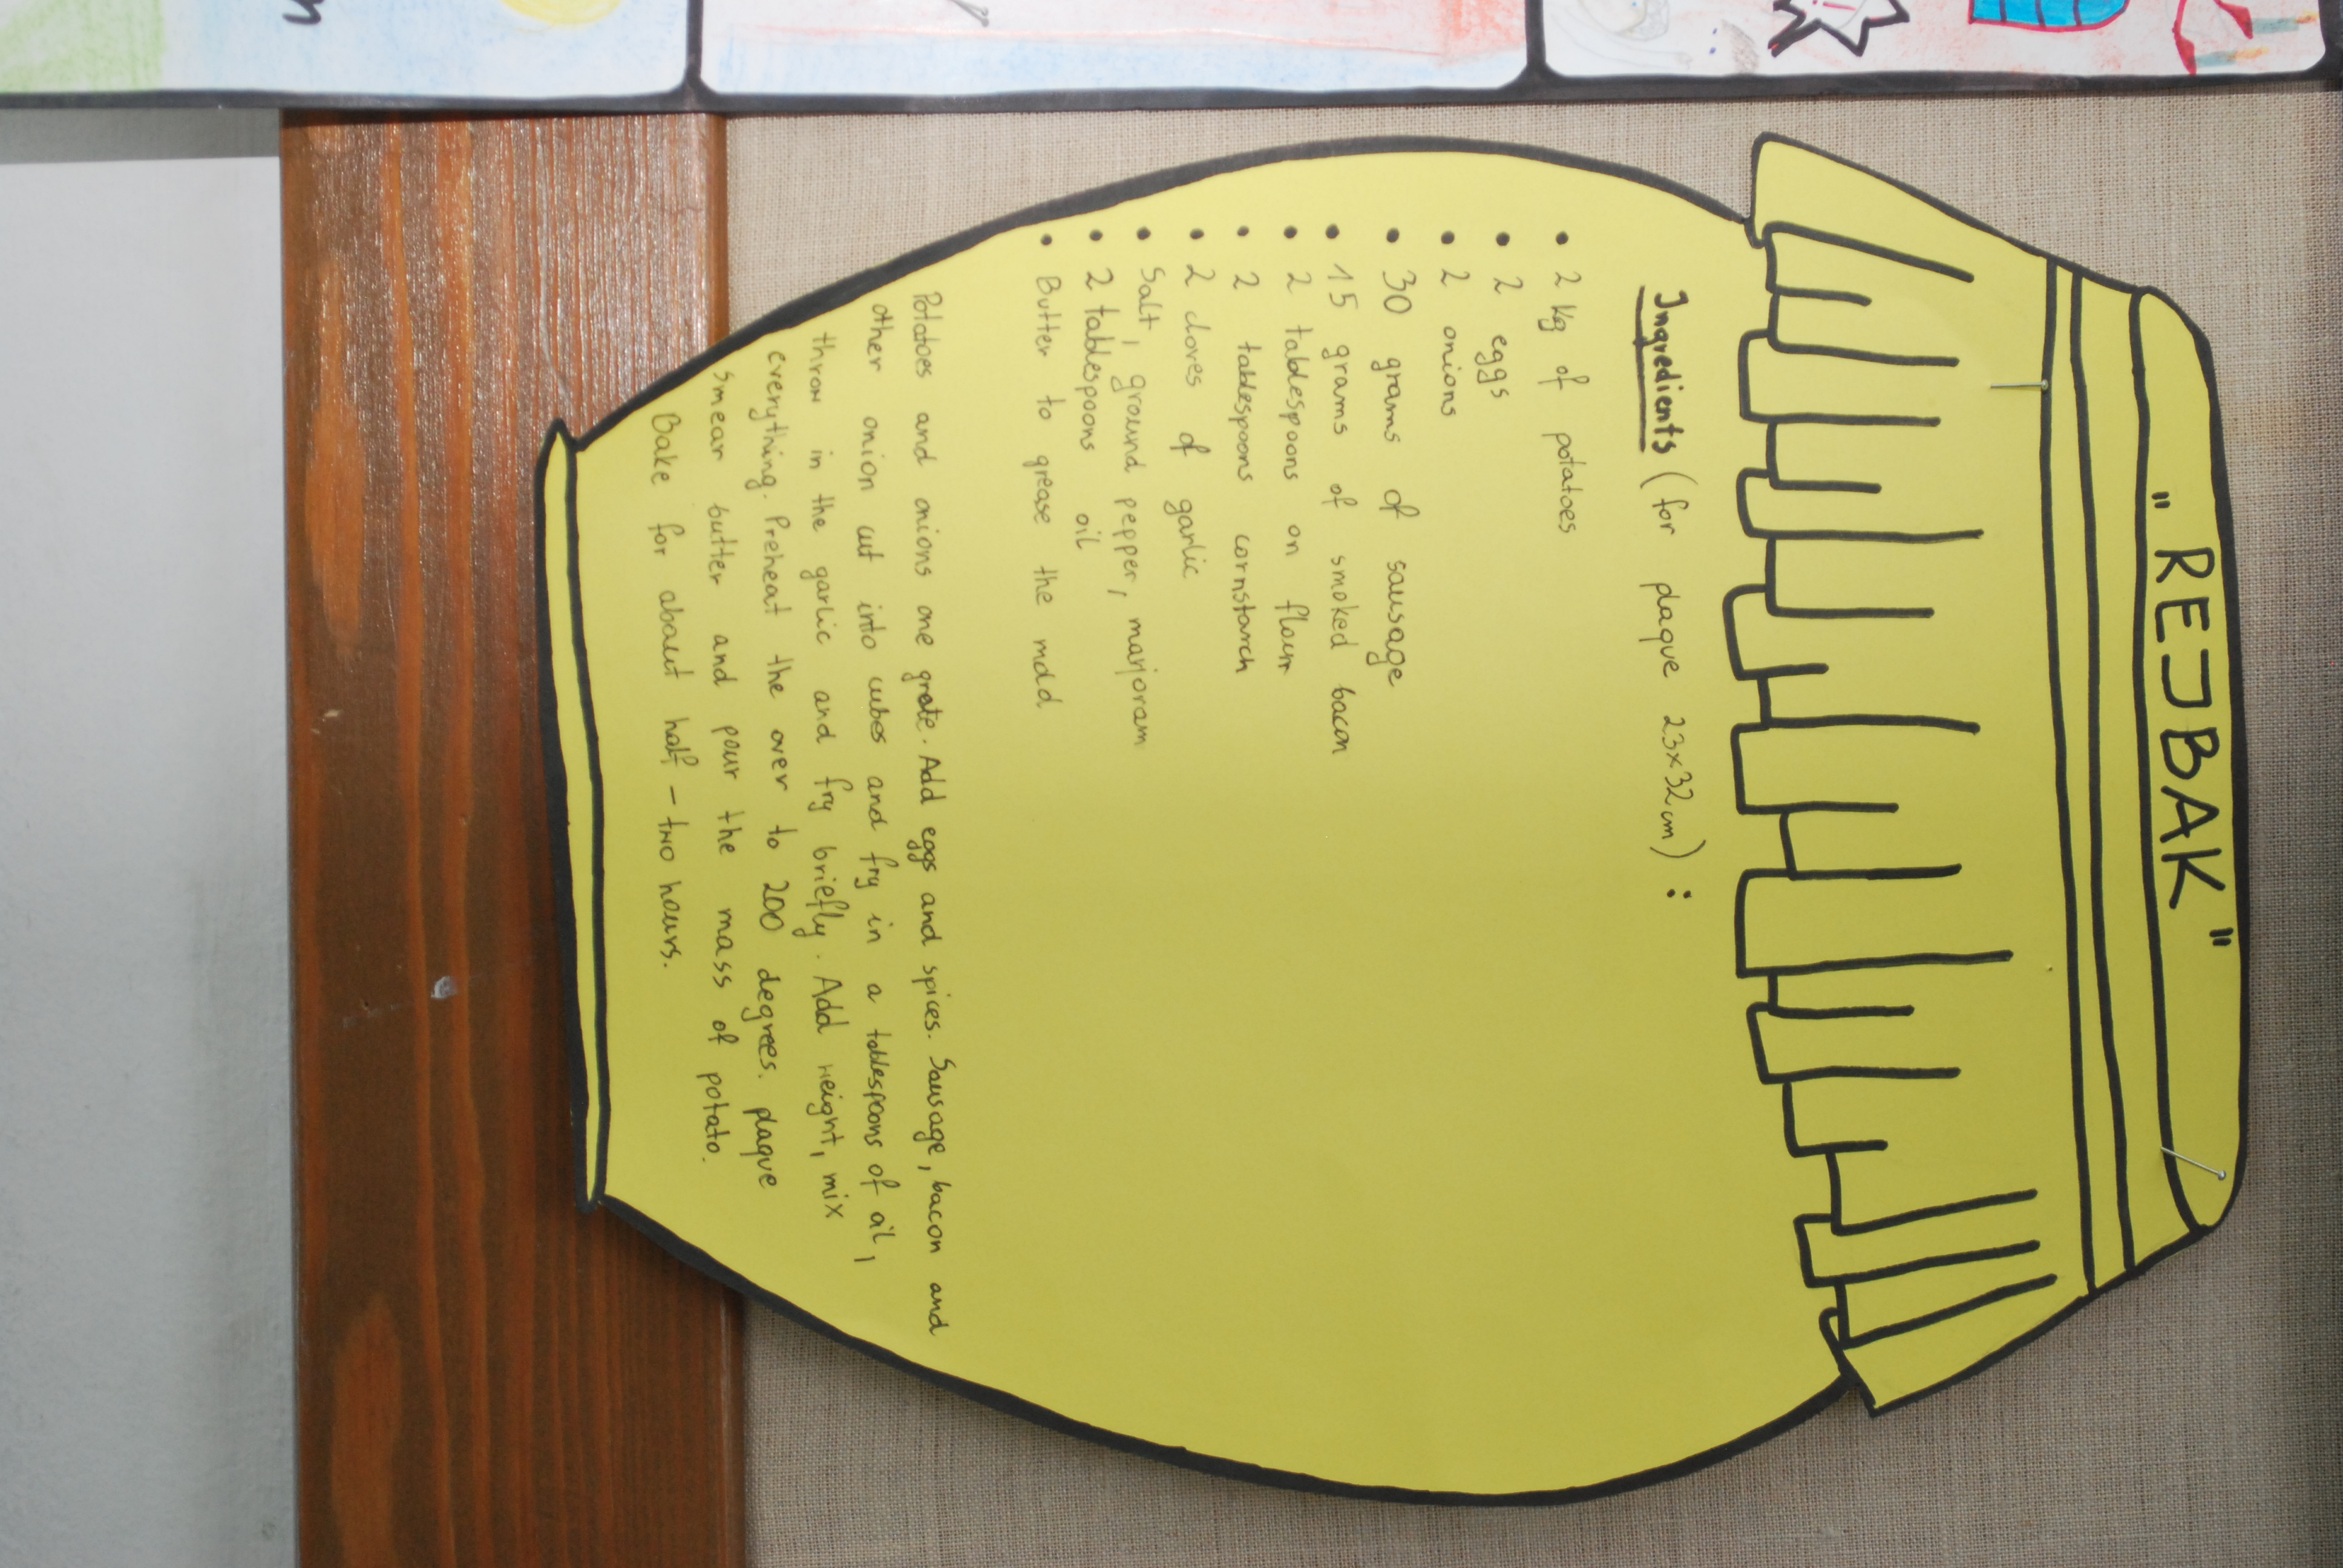 "REJBAK"
Ingredients (for plaque 23x32cm):
• 2 kg of potatoes
• 2 eggs
• 2 onions
• 30 grams of sausage
• 15 grams of smoked bacon
• 2 tablespoons on flour
• 2 tablespoons cornstarch
• 2 cloves of garlic
• Salt, ground pepper, marjoram
• 2 tablespoons oil
• Butter to grease the mold
Potatoes and onions one grate. Add eggs and spices. Sausage, bacon and
other onion cut into cubes and fry in a tablespoons of oil,
throw in the garlic and fry briefly. Add weight, mix
everything. Preheat the over to 200 degrees. plaque
smear butter and pour the mass of potato.
Bake for about half - two hours.